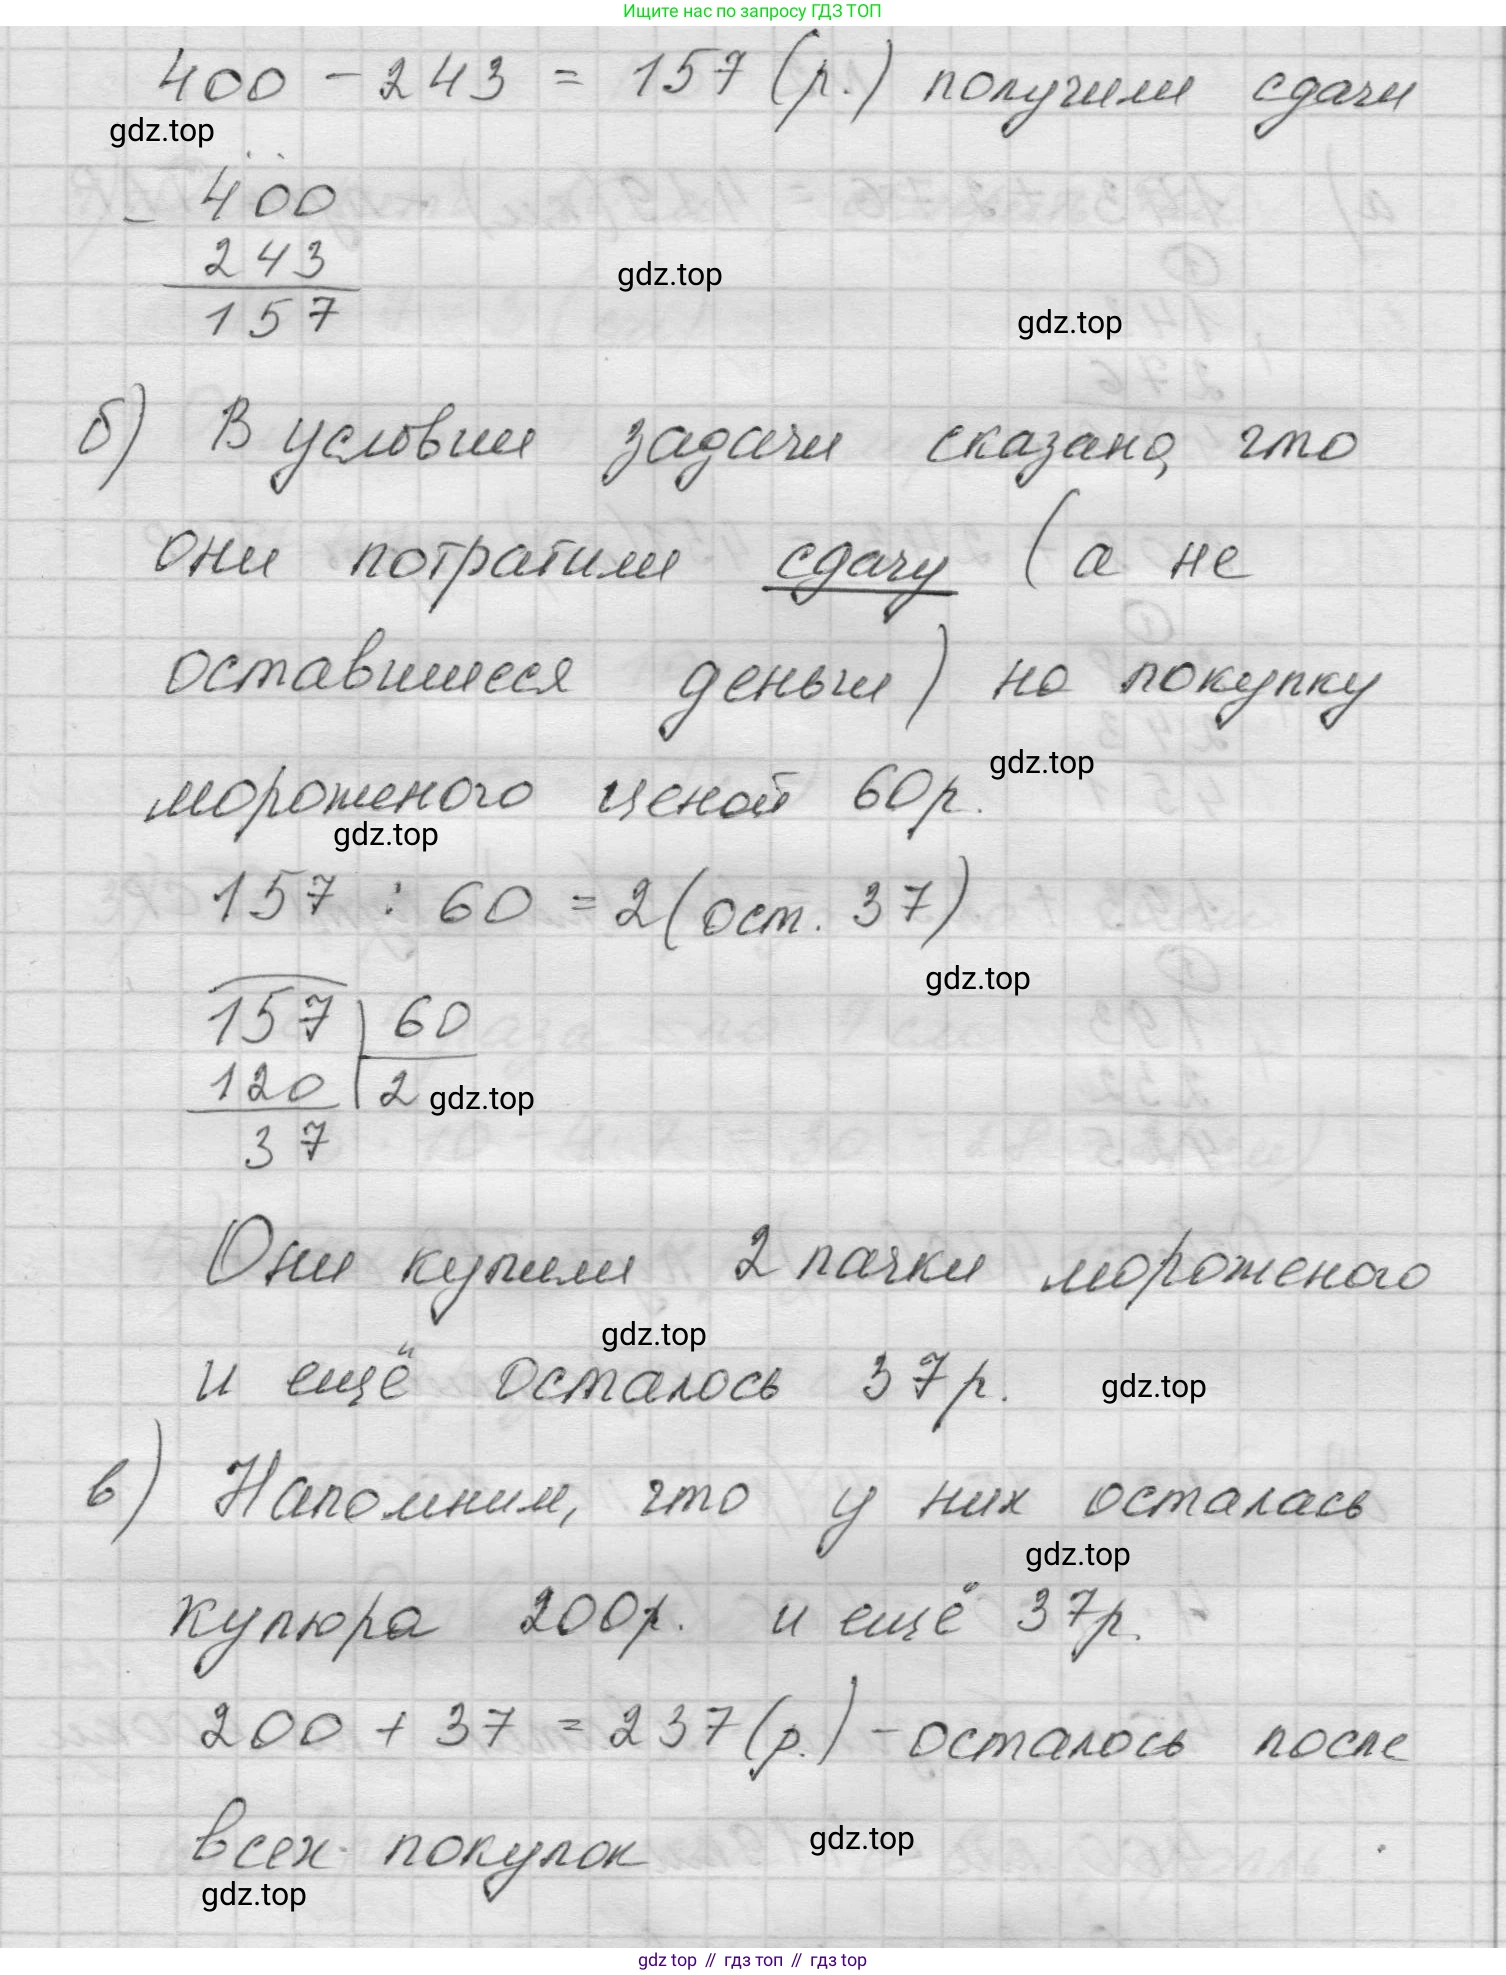 Ищите нас по запросу ГДЗ ТОП
400 - 243 = 157 (р.) получили сдачи
gdz.top
- 400
243
157
gdz.top
gdz.top
б) В условии задачи сказано, что
они потратили сдачу (а не
оставшиеся деньги) на покупку
gdz.top
мороженого ценой 60р.
gdz.top
157 : 60 = 2 (ост. 37)
gdz.top
157 60
120 2
gdz.top
37
Они купили 2 пачки мороженого
gdz.top
и ещё осталось 37р.
gdz.top
в) Напомним, что у них осталась
gdz.top
купюра 200р. и ещё 37р.
200 + 37 = 237 (р.) - осталось после
всех покупок
gdz.top
gdz.top
gdz top // гдз топ // гдз top